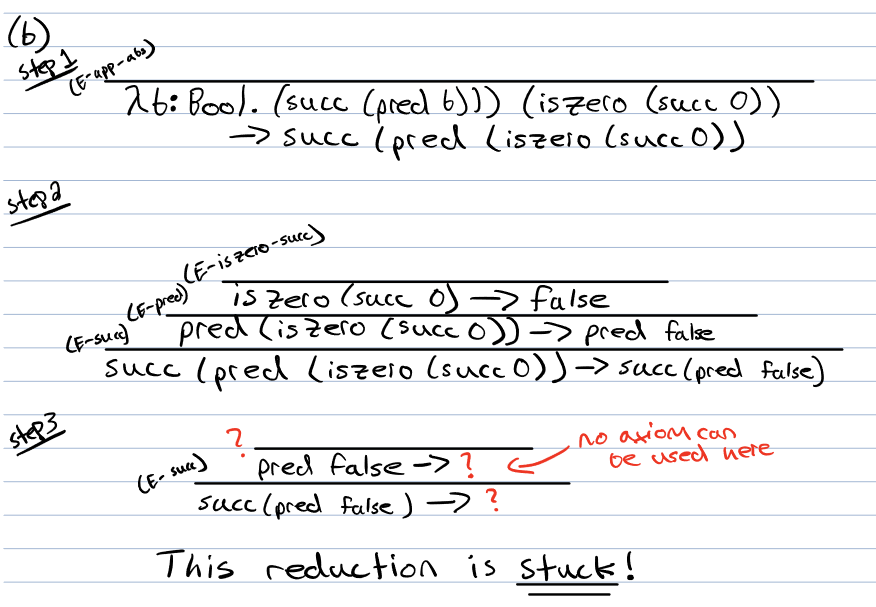 (b)
step 1
(E-app-abs)
λb: Bool. (succ (pred b))) (iszero (succ 0))
→ succ (pred (iszero (succ 0))
step 2
(E-iszero-succ)
iszero (succ 0) → false
(E-pred)
pred (iszero (succ 0)) → pred false
(E-succ)
succ (pred (iszero (succ 0)) → succ (pred false)
step 3
? no axiom can
be used here
pred false → ?
(E-succ)
succ (pred false) → ?
This reduction is stuck!